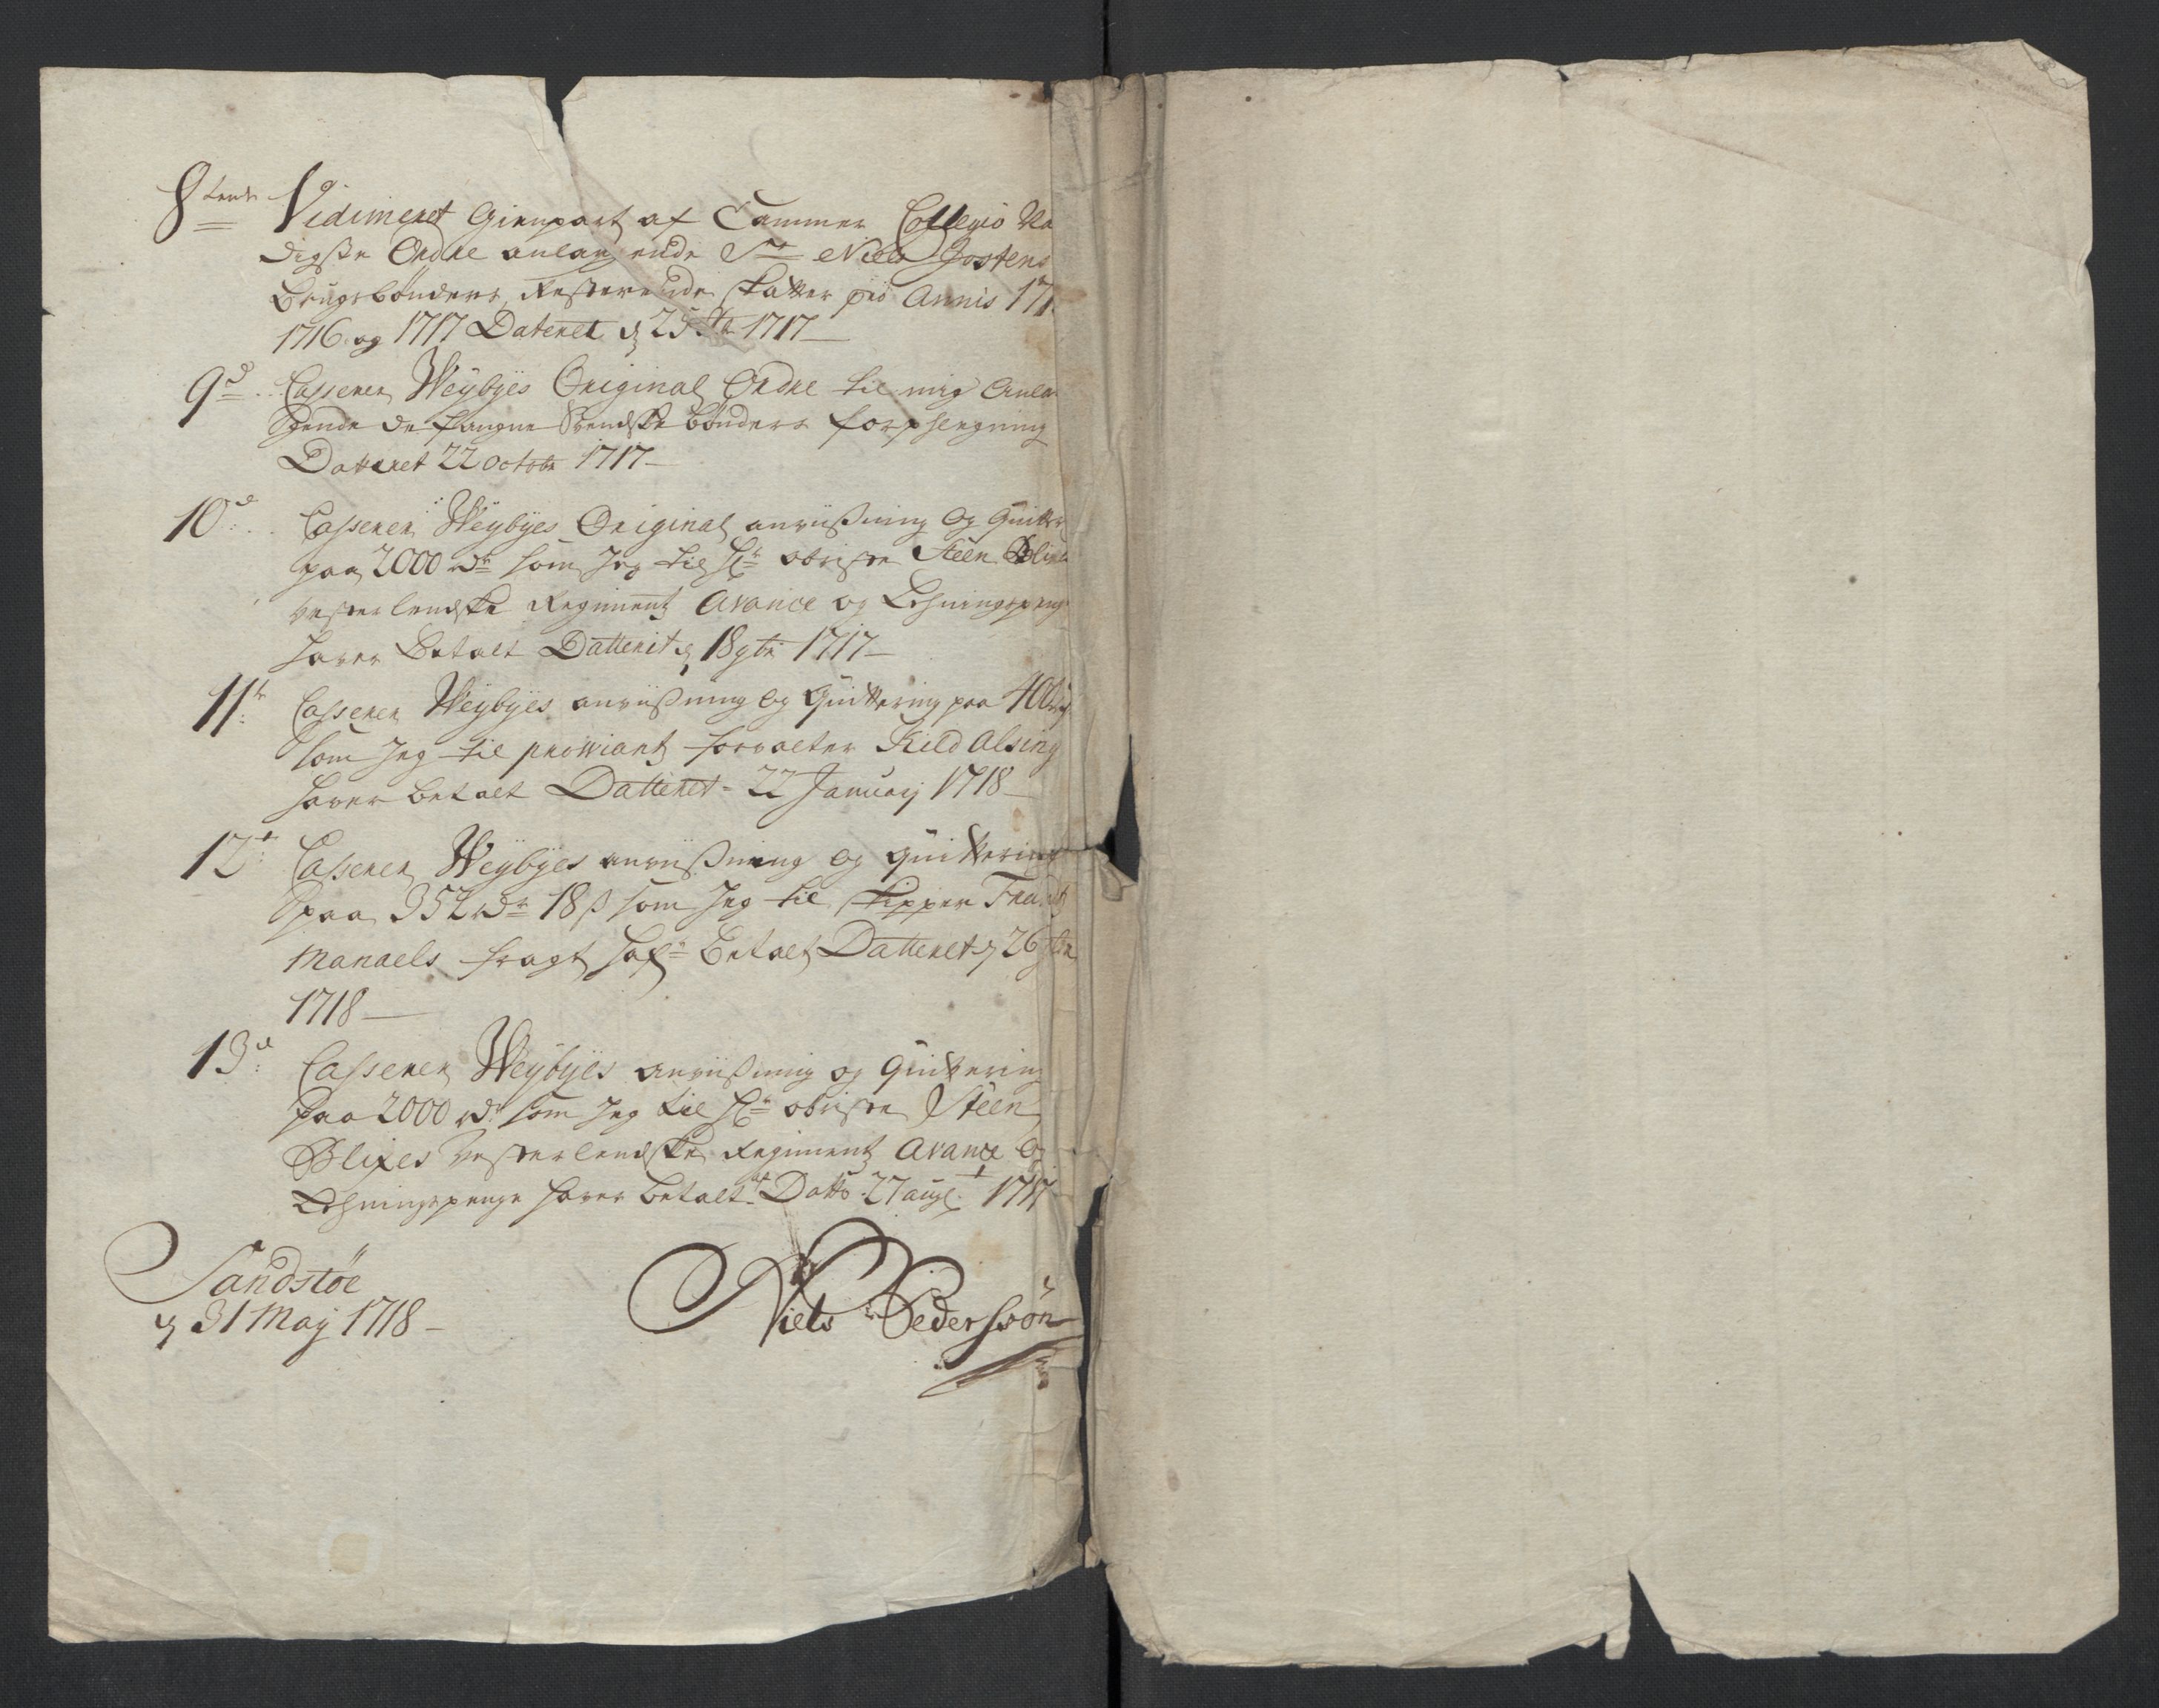 8tende Vidimeret Gienpart af Cammer Collegio Na
digste Ordre anlangende Sr Niels Jostens
Brugsbønders Resterende skatter pro Annis 171
1716 og 1717 Dateret d 25 1717
9d Casserer Weybyes Original Ordre til mig Anla
gende de fangne Svendske bønders forpflegning
Datteret 22 Octobr 1717
10d Casserer Weybyes Original anviisning og Quitter
paa 2000 Rdr som Jeg til Hr obriste Steen Blix
vesterlendske Regiment Avance og Lehningspeng
haver Betalt Datterit d 18 9br 1717
11te Casserer Weybyes anviisning og Quittering paa 400
som Jeg til proviant forvalter Kield Alsing
haver betalt Datteret 22 Januarj 1718
12t Casserer Weybyes anviisning og quittering
paa 352 Rdr 18 s som Jeg til skipper
Manaels fragt hafr Betalt Datteret d 26
1718
13d Casserer Weybyes anviisning og Quittering
paa 2000 Rdr som Jeg til Hr obriste Steen
Blixes Vesterlendske Regiment Avance og
Lehningspenge haver betalt Datto 27 aug 1717
Sandstöe
d 31 Maj 1718
Niels Pedersøn